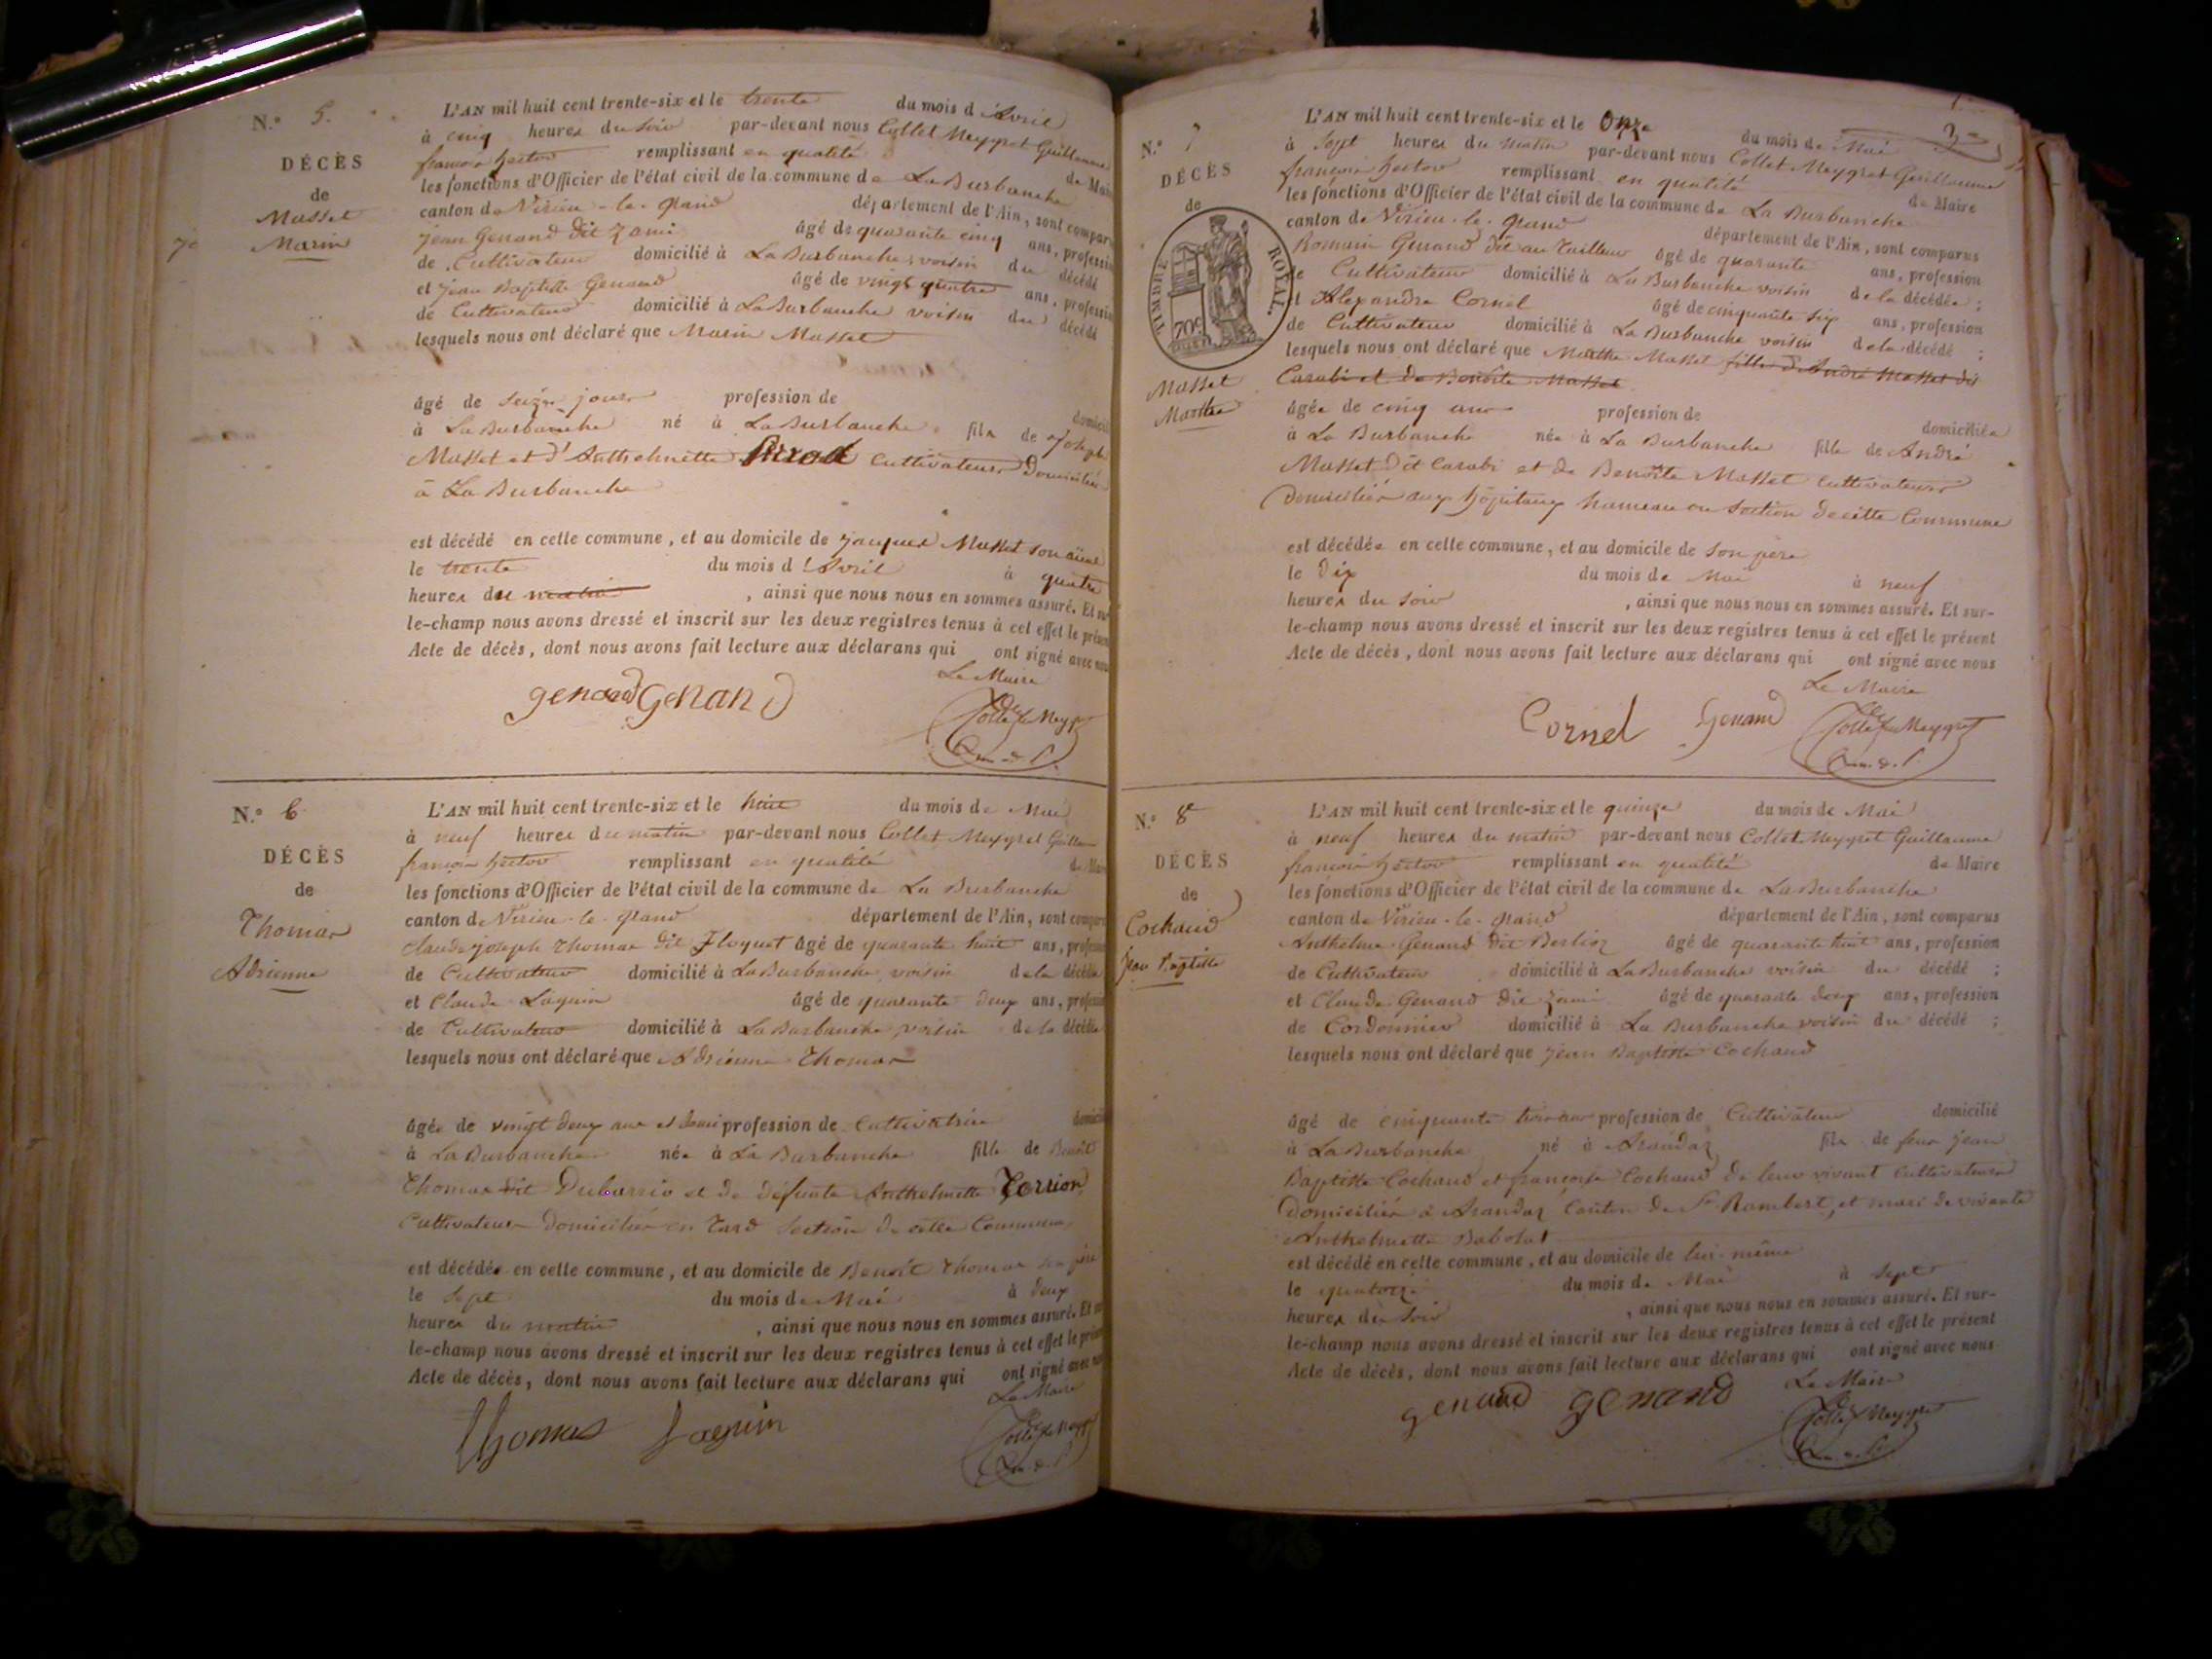 N.° 5.
DÉCÈS
de
Masset
Marin
L'AN mil huit cent trente-six et le trente du mois d'Avril
à cinq heures du soir par-devant nous Collet Meygret Guillaume
françois hector remplissant en qualité de Maire
les fonctions d'Officier de l'état civil de la commune de La Burbanche
canton de Virieu-le-grand département de l'Ain, sont comparus
Jean Genand dit Zami âgé de quarante cinq ans, profession
de Cultivateur domicilié à La Burbanche voisin du décédé
et Jean Baptiste Genand âgé de vingt quatre ans, profession
de Cultivateur domicilié à La Burbanche voisin du décédé
lesquels nous ont déclaré que Marin Masset
âgé de seize jours profession de domicilié
à La Burbanche né à La Burbanche fils de Joseph
Masset et d'Anthelmette cultivateurs domiciliés
à La Burbanche
est décédé en cette commune, et au domicile de Jacques Masset son aïeul
le trente du mois d'Avril à quatre
heures du matin, ainsi que nous nous en sommes assuré. Et sur-
le-champ nous avons dressé et inscrit sur les deux registres tenus à cet effet le présent
Acte de décès, dont nous avons fait lecture aux déclarans qui ont signé avec nous
Le Maire
genand Genand Collet Meygret
N.° 6
DÉCÈS
de
Thomas
Adrienne
L'AN mil huit cent trente-six et le huit du mois de Mai
à neuf heures du matin par-devant nous Collet Meygret Guillaume
françois hector remplissant en qualité de Maire
les fonctions d'Officier de l'état civil de la commune de La Burbanche
canton de Virieu-le-grand département de l'Ain, sont comparus
Claude joseph Thomas dit Floquet âgé de quarante huit ans, profession
de Cultivateur domicilié à La Burbanche voisin de la décédée
et Claude Laguin âgé de quarante deux ans, profession
de Cultivateur domicilié à La Burbanche voisin de la décédée
lesquels nous ont déclaré que Adrienne Thomas
âgée de vingt deux ans et demi profession de Cultivatrice domiciliée
à La Burbanche née à La Burbanche fille de Benoît
Thomas dit et de défunte Anthelmette
Cultivateurs domiciliés en Tard section de cette Commune
est décédée en cette commune, et au domicile de Benoît Thomas son père
le sept du mois de Mai à deux
heures du matin, ainsi que nous nous en sommes assuré. Et sur-
le-champ nous avons dressé et inscrit sur les deux registres tenus à cet effet le présent
Acte de décès, dont nous avons fait lecture aux déclarans qui ont signé avec nous
Le Maire
Thomas Laguin Collet Meygret
3
N.° 7
DÉCÈS
de
TIMBRE ROYAL.
70c
Masset
Marthe
L'AN mil huit cent trente-six et le Onze du mois de Mai
à sept heures du matin par-devant nous Collet Meygret Guillaume
françois hector remplissant en qualité de Maire
les fonctions d'Officier de l'état civil de la commune de La Burbanche
canton de Virieu-le-grand département de l'Ain, sont comparus
Romain Genand dit au Tailleur âgé de quarante ans, profession
de Cultivateur domicilié à La Burbanche voisin de la décédée ;
et Alexandre Cornel âgé de cinquante six ans, profession
de Cultivateur domicilié à La Burbanche voisin de la décédé ;
lesquels nous ont déclaré que Marthe Masset fille d'André Masset dit
Carabi et de Benoîte Masset
âgée de cinq ans profession de domiciliée
à La Burbanche née à La Burbanche fille de André
Masset dit Carabi et de Benoîte Masset cultivateurs
domiciliés aux hôpitaux hameau ou section de cette Commune
est décédée en cette commune, et au domicile de son père
le dix du mois de Mai à neuf
heures du soir, ainsi que nous nous en sommes assuré. Et sur-
le-champ nous avons dressé et inscrit sur les deux registres tenus à cet effet le présent
Acte de décès, dont nous avons fait lecture aux déclarans qui ont signé avec nous
Le Maire
Cornel Genand Collet Meygret
N.° 8
DÉCÈS
de
Cochand
Jean Baptiste
L'AN mil huit cent trente-six et le quinze du mois de Mai
à neuf heures du matin par-devant nous Collet Meygret Guillaume
françois hector remplissant en qualité de Maire
les fonctions d'Officier de l'état civil de la commune de La Burbanche
canton de Virieu-le-grand département de l'Ain, sont comparus
Anthelme Genand dit Berlioz âgé de quarante huit ans, profession
de Cultivateur domicilié à La Burbanche voisin du décédé ;
et Claude Genand dit Zami âgé de quarante deux ans, profession
de Cordonnier domicilié à La Burbanche voisin du décédé ;
lesquels nous ont déclaré que Jean Baptiste Cochand
âgé de cinquante trois ans profession de Cultivateur domicilié
à La Burbanche né à Arandaz fils de feux jean
Baptiste Cochand et françoise Cochand de leur vivant cultivateurs
domiciliés à Arandaz Canton de St Rambert, et mari de vivante
Anthelmette Babolat
est décédé en cette commune, et au domicile de lui-même
le quatorze du mois de Mai à sept
heures du soir, ainsi que nous nous en sommes assuré. Et sur-
le-champ nous avons dressé et inscrit sur les deux registres tenus à cet effet le présent
Acte de décès, dont nous avons fait lecture aux déclarans qui ont signé avec nous
Le Maire
genand genand Collet Meygret